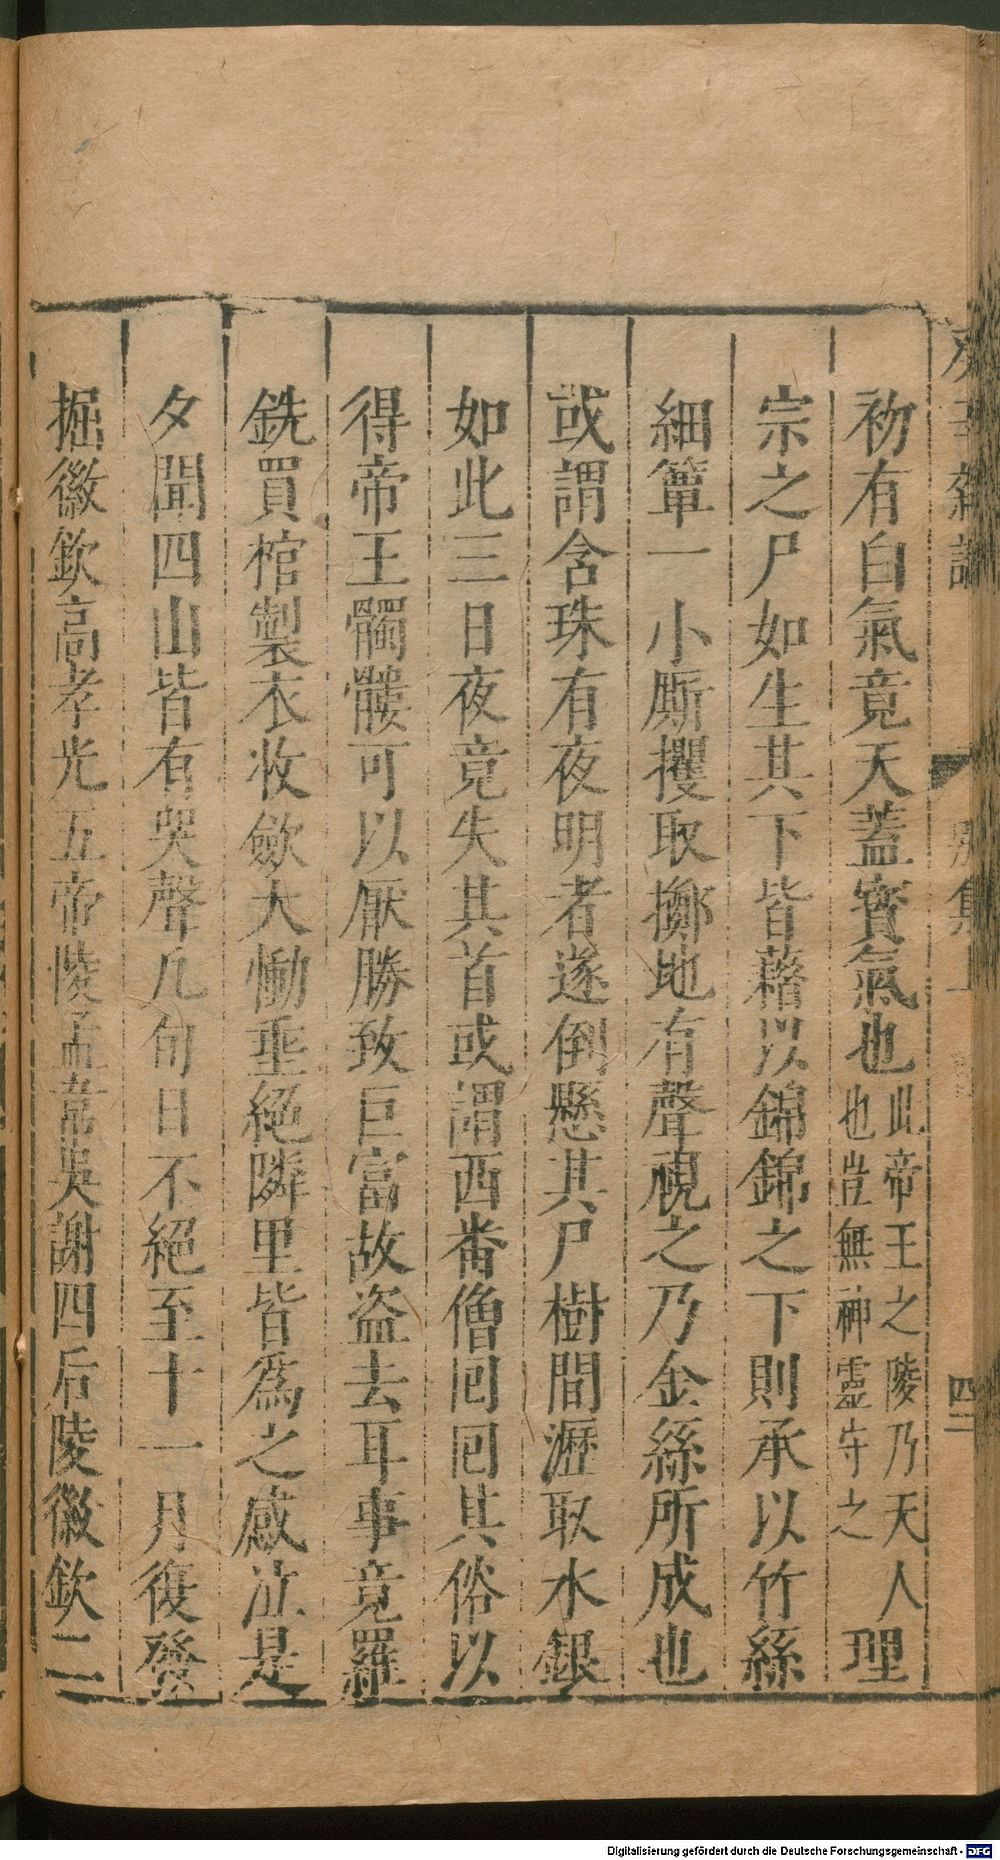 初有白氣竟天蓋寶氣也此帝王之陵乃天人也豈無神靈守之理
宗之尸如生其下皆藉以錦錦之下則承以竹絲
細簟一小厮攫取擲地有聲視之乃金絲所成也
或謂含珠有夜明者遂倒懸其尸樹間瀝取水銀
如此三日夜竟失其首或謂西番僧囘囘其俗以
得帝王髑髏可以厭勝致巨富故盗去耳事竟羅
銑買棺製衣收斂大慟垂絕隣里皆為之感泣是
夕聞四山皆有哭聲凡旬日不絕至十一月復發
掘徽欽高孝光五帝陵孟韋吳謝四后陵徽欽二
集上
四
Digitalisierung gefördert durch die Deutsche Forschungsgemeinschaft - DFG